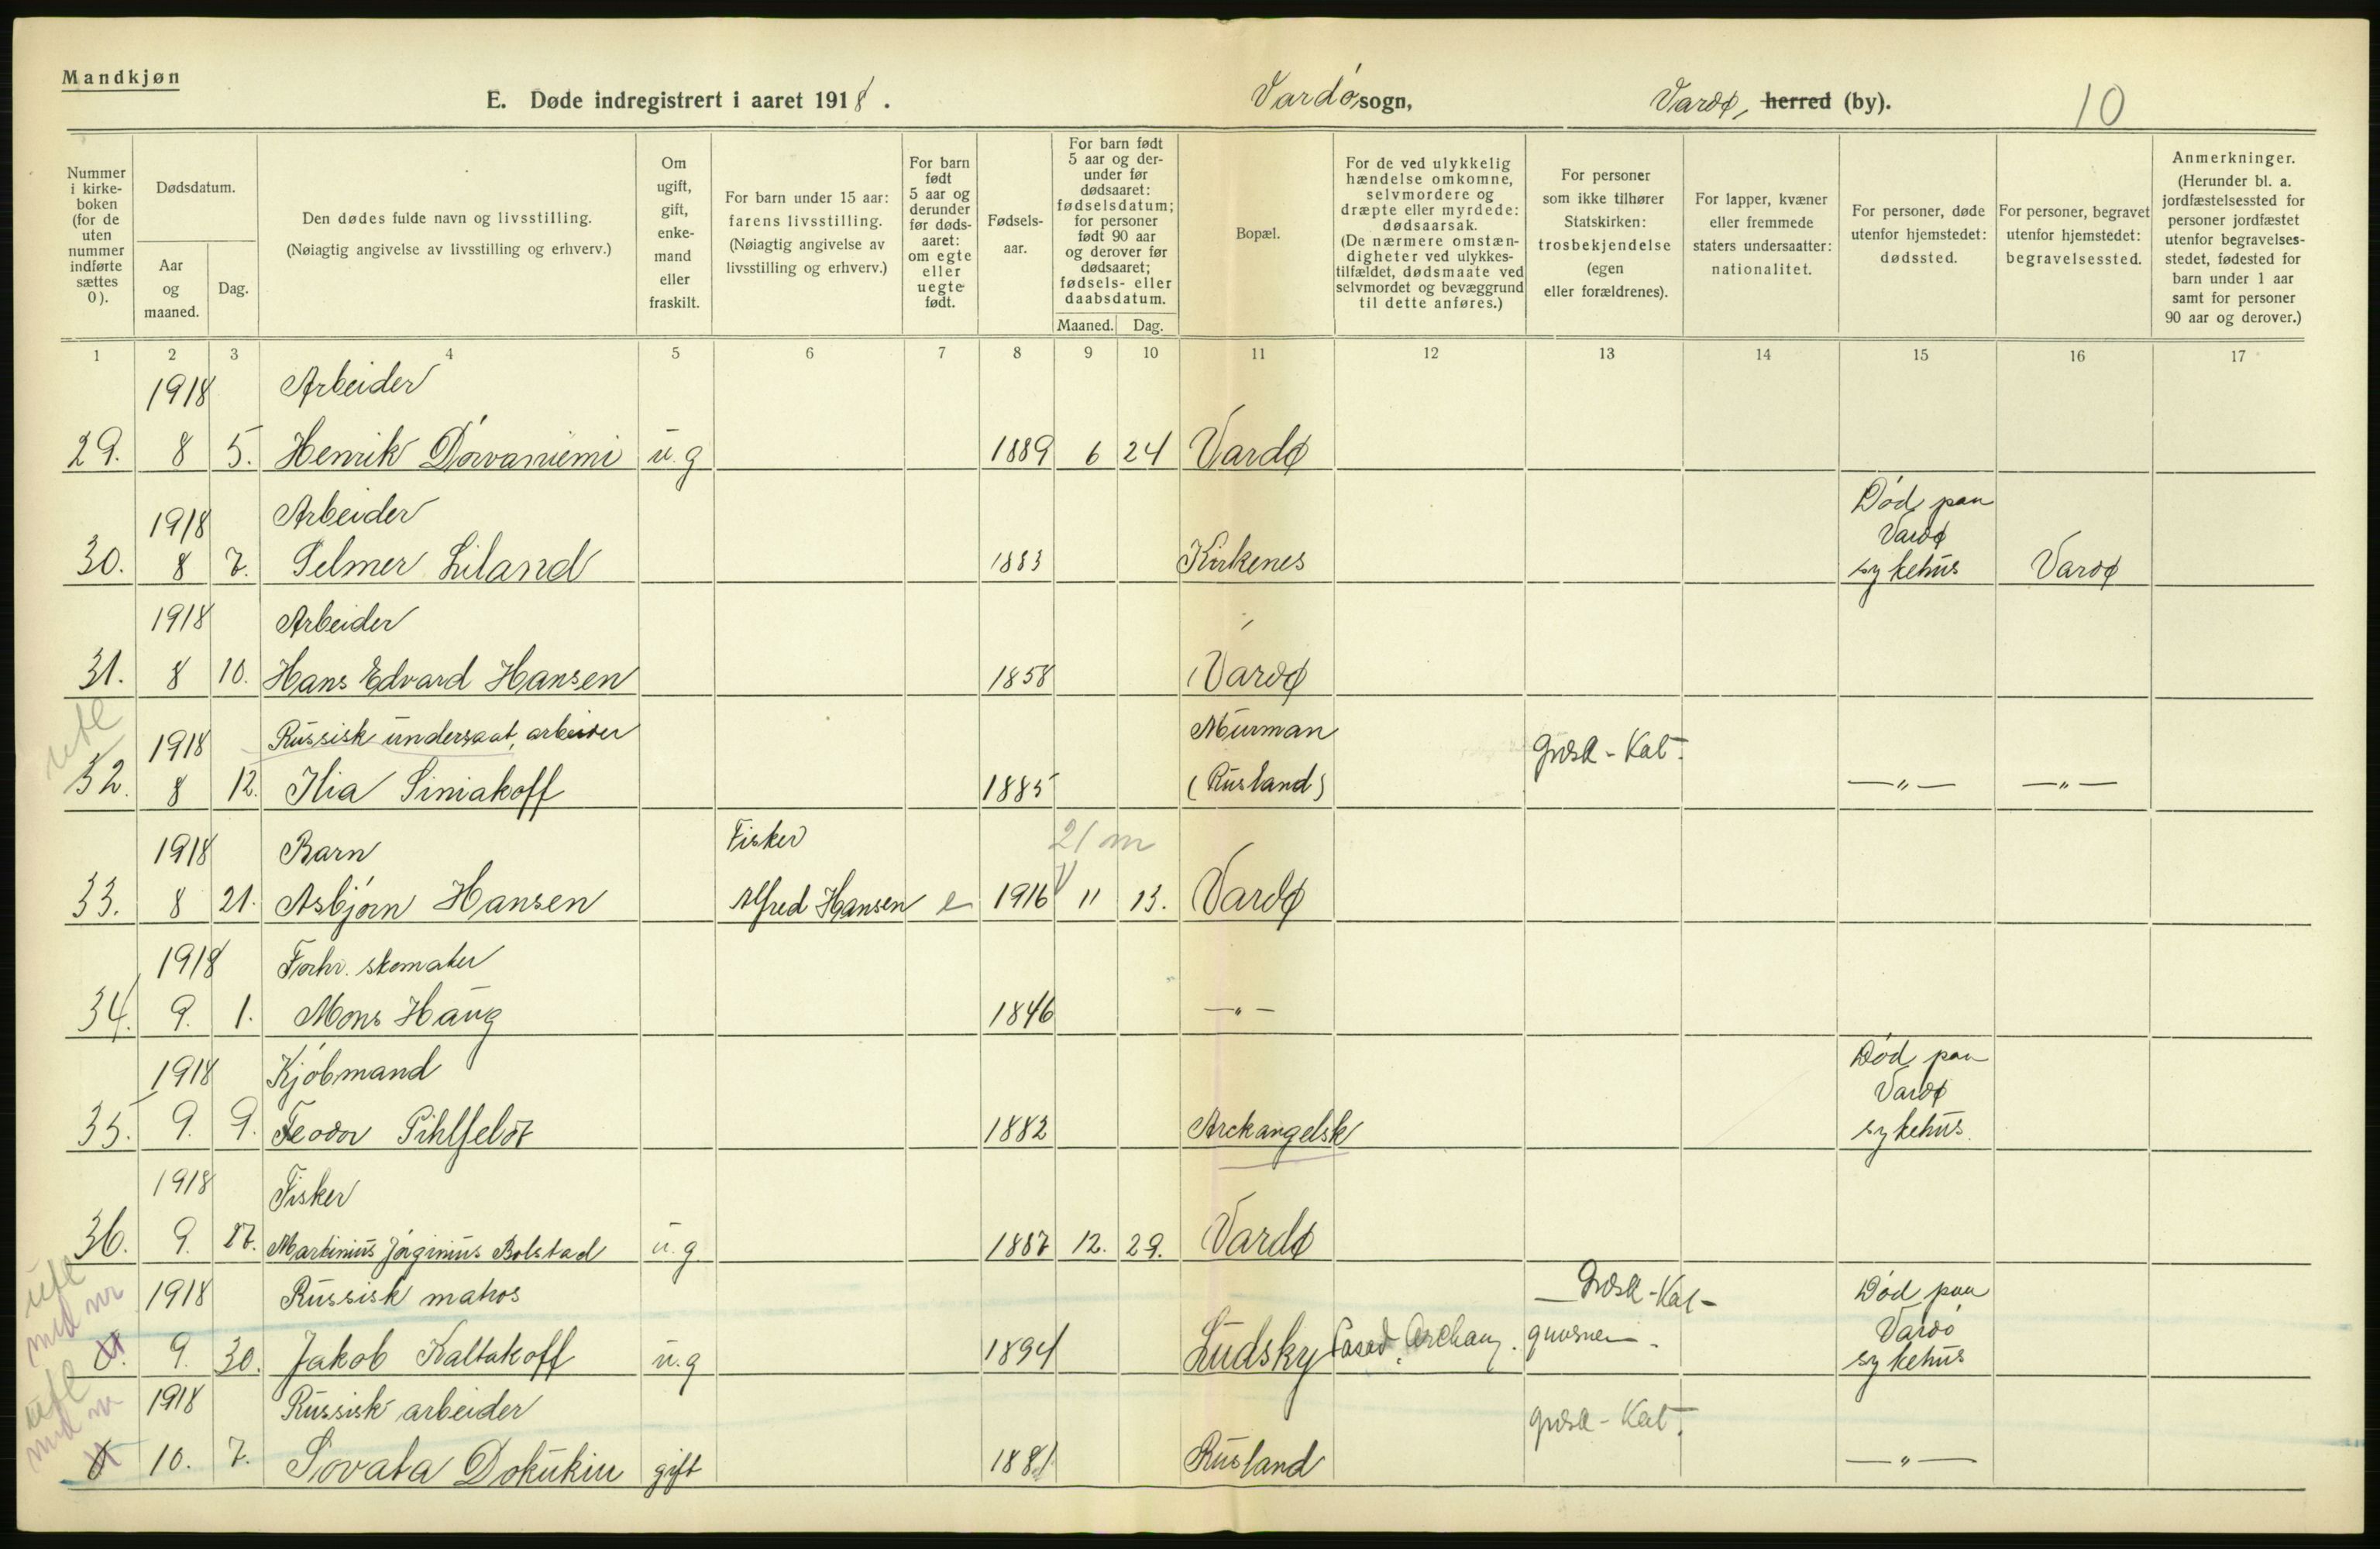 Mandkjøn
E. Døde indregistrert i aaret 1918.
Vardø sogn,
Vardø, herred (by).
10
Nummer i kirke-boken (for de uten nummer indførte sættes 0).
Dødsdatum.
Aar og maaned.
Dag.
Den dødes fulde navn og livsstilling.
(Nøiagtig angivelse av livsstilling og erhverv.)
Om ugift, gift, enke-mand eller fraskilt.
For barn under 15 aar: farens livsstilling.
(Nøiagtig angivelse av livsstilling og erhverv.)
For barn født 5 aar og derunder før døds-aaret: om egte eller uegte født.
Fødsels-aar.
For barn født 5 aar og der-under før dødsaaret: fødselsdatum; for personer født 90 aar og derover før dødsaaret; fødsels- eller daabsdatum.
Maaned.
Dag.
Bopæl.
For de ved ulykkelig hændelse omkomne, selvmordere og dræpte eller myrdede: dødsaarsak.
(De nærmere omstæn-digheter ved ulykkes-tilfældet, dødsmaate ved selvmordet og bevæggrund til dette anføres.)
For personer som ikke tilhører Statskirken: trosbekjendelse (egen eller forældrenes).
For lapper, kvæner eller fremmede staters undersaatter: nationalitet.
For personer, døde utenfor hjemstedet: dødssted.
For personer, begravet utenfor hjemstedet: begravelsessted.
Anmerkninger.
(Herunder bl. a. jordfæstelsessted for personer jordfæstet utenfor begravelses-stedet, fødested for barn under 1 aar samt for personer 90 aar og derover.)
1 2 3 4 5 6 7 8 9 10 11 12 13 14 15 16 17
1918 Arbeider
29. 8 5. Henrik Dørvaniemi u.g 1889 6 24 Vardø
1918 Arbeider Død paa Vardø
30. 8 7. Selmer Liland 1883 Kirkenes sykehus Vardø
1918 Arbeider
31. 8 10. Hans Edvard Hansen 1858 Vardø
utl
1918 Russisk undersaat, arbeider Murman græsk-Kat.
32. 8 12. Ilia Siniakoff 1885 (Rusland) —"— —"—
1918 Barn Fisker 21 m
33. 8 21. Asbjørn Hansen Alfred Hansen e 1916 11 13. Vardø
1918 Forhv. skomaker
34. 9. 1. Mons Haug 1846 —"—
1918 Kjøbmand Død paa Vardø
35. 9. 9. Feodor Pihlfeldt 1882 Archangelsk sykehus.
1918 Fisker
36. 9. 17. Martinius Jørginius Bolstad u.g 1887 12. 29. Vardø
utl
med nr
1918 Russisk matros Græsk-Kat- Død paa Vardø
0. 9. 30. Jakob Kaltakoff u.g 1894 Ludsky Posad, Archang. guvernem. sykehus
utl
med nr
1918 Russisk arbeider græsk-Kat.
0 10. 7. Sovata Dokukin gift 1881 Rusland —"—